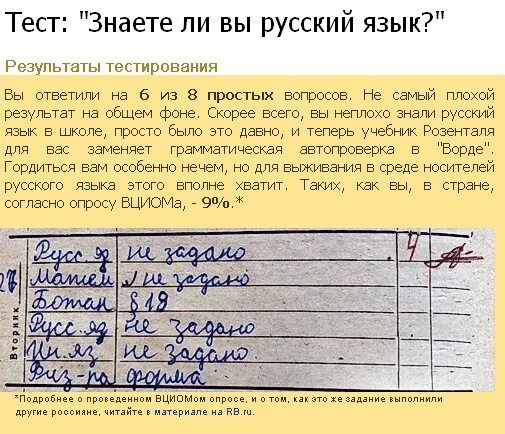 Тест: "Знаете ли вы русский язык?"
Результаты тестирования
Вы ответили на 6 из 8 простых вопросов. Не самый плохой
результат на общем фоне. Скорее всего, вы неплохо знали русский
язык в школе, просто было это давно, и теперь учебник Розенталя
для вас заменяет грамматическая автопроверка в "Ворде".
Гордиться вам особенно нечем, но для выживания в среде носителей
русского языка этого вполне хватит. Таких, как вы, в стране,
согласно опросу ВЦИОМа, - 9%.*
Русс. яз не задано 4
Матем не задано
Ботан § 19
Русс. яз не задано
Ин. яз не задано
Физ-ра форма
Вторник
*Подробнее о проведенном ВЦИОМом опросе, и о том, как это же задание выполнили
другие россияне, читайте в материале на RB.ru.